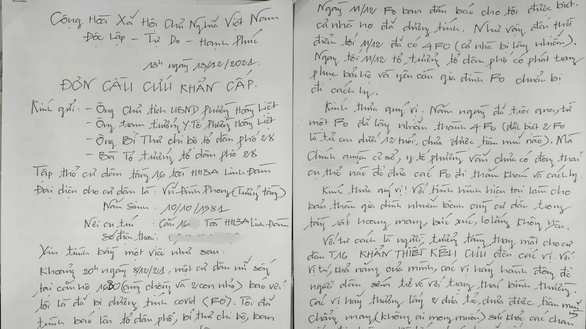 Cộng Hòa Xã Hội Chủ Nghĩa Việt Nam
Độc Lập - Tự Do - Hạnh Phúc
13h ngày 13/12/2021
ĐƠN CẦU CỨU KHẨN CẤP.
Kính gửi: - Ông Chủ tịch UBND Phường Hoàng Liệt
- Ông trạm trưởng Y Tế Phường Hoàng Liệt
- Ông Bí Thư chi bộ tổ dân phố 28
- Bà Tổ trưởng tổ dân phố 28
Tập thể cư dân tầng 16 toà HH3A Linh Đàm
Đại diện cho cư dân là: Vũ Đình Phong (Trưởng tầng)
Năm Sinh: 10/10/1981
Nơi cư trú: Căn 16 Toà HH3A Linh Đàm
Số điện thoại:
Xin trình bày một việc như sau:
Khoảng 20h ngày 8/12/21, một cư dân nữ sống
tại căn hộ (vợ chồng và 2 con nhỏ) báo với
tôi là đã bị dương tính covid (F0). Tôi đã
trình báo lên tổ dân phố, bí thư chi bộ, ban
Ngày 11/12 F0 ban đầu báo cho tôi được biết
cả nhà họ đã dương tính. Như vậy đến thời
điểm tối 11/12 đã có 4 F0 (cả nhà bị lây nhiễm).
Ngay tối 11/12 tổ trưởng tổ dân phố có phát trang
phục bảo hộ và yêu cầu gia đình F0 chuẩn bị
đi cách ly.
Kính thưa quý vị. Năm ngày đã trôi qua, từ
một F0 đã lây nhiễm thành 4 F0 (đặc biệt 2 F0
là trẻ em dưới 12 tuổi, chưa được tiêm mũi nào). Mà
Chính quyền cơ sở, y tế phường vẫn chưa có động thái
cụ thể nào để đưa các F0 đi thăm khám và cách ly.
Kính thưa quý vị! Với tình hình hiện tại làm cho
bản thân gia đình nhiễm bệnh cùng cư dân trong
tầng rất hoang mang, bức xúc, lo lắng không yên.
Với tư cách là người trưởng tầng thay mặt cho cư
dân T16 KHẨN THIẾT KÊU CỨU đến các vị. Với
vị trí, khả năng của mình, các vị hãy hành động để
người dân sớm trở về với trạng thái bình thường.
Các vị hãy thương lấy 2 đứa trẻ, chưa được tiêm mũi nào
chẳng may (không ai mong muốn) sức khỏe các cháu